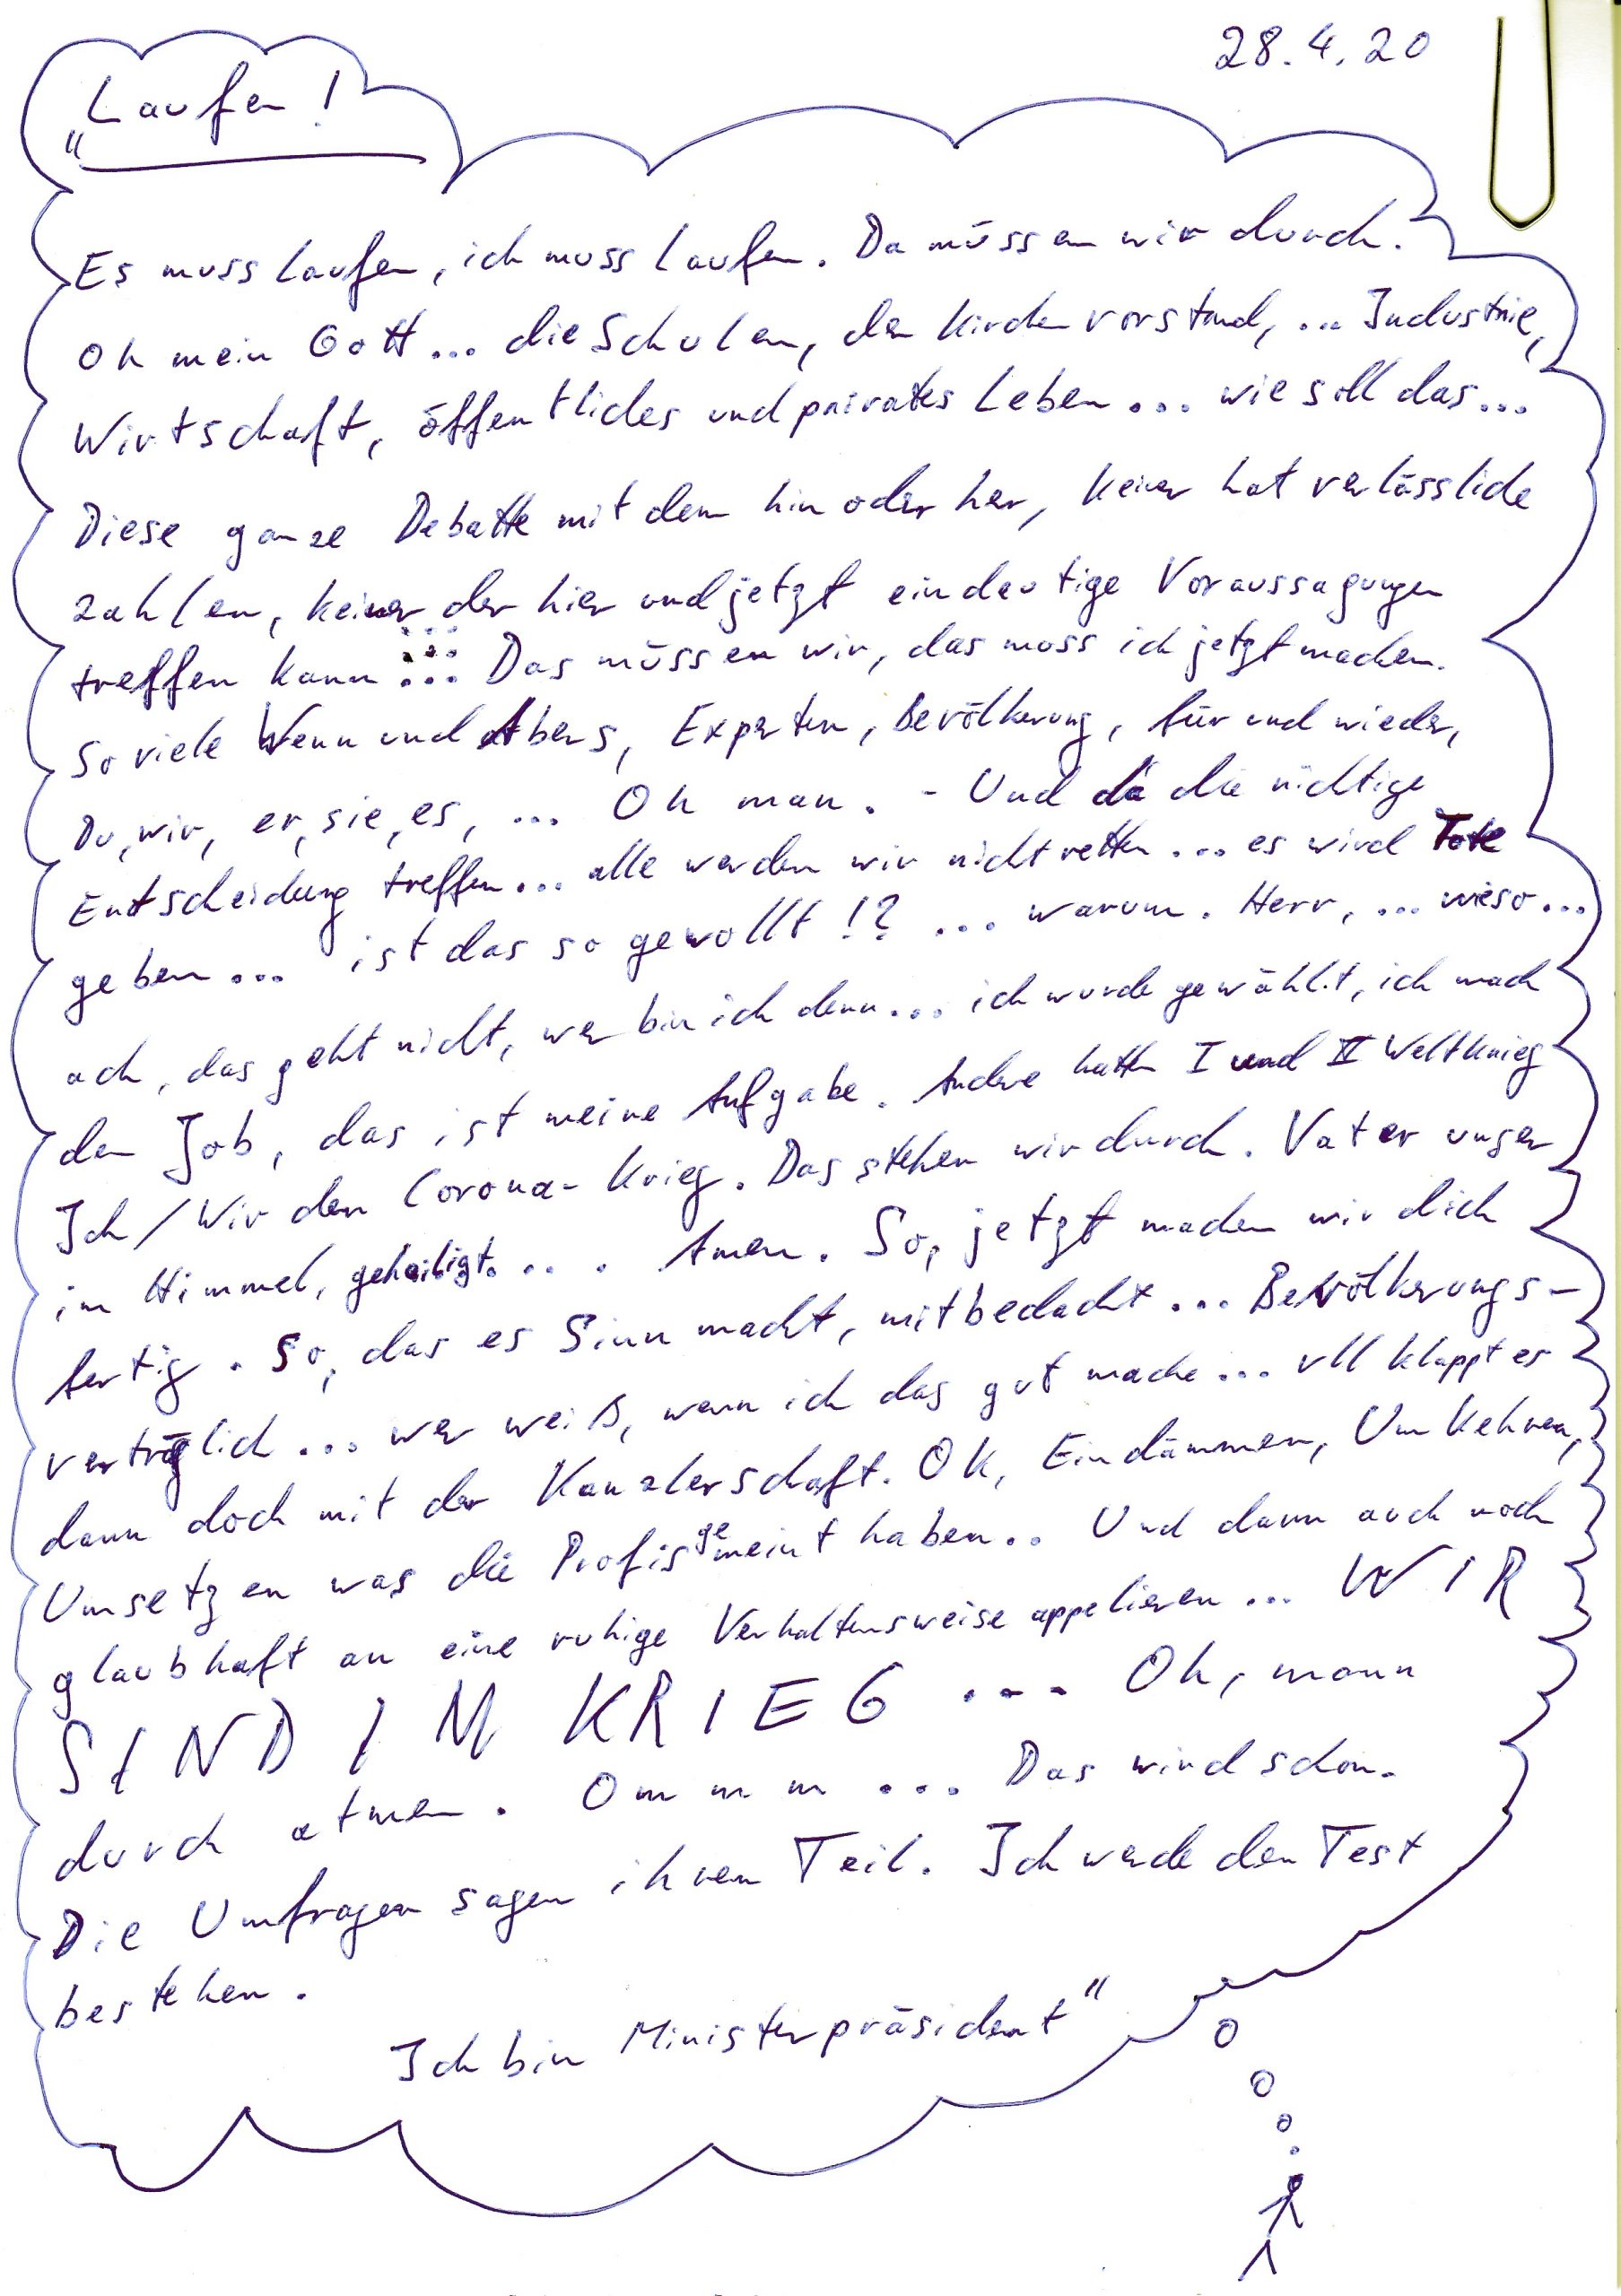 28.4.20
„Laufen!
Es muss laufen, ich muss laufen. Da müssen wir durch.
Oh mein Gott... die Schulen, der Kirchenvorstand, ... Industrie,
Wirtschaft, öffentliches und privates Leben... wie soll das...
Diese ganze Debatte mit dem hin oder her, keiner hat verlässliche
Zahlen, keiner der hier und jetzt eindeutige Voraussagungen
treffen kann ... Das müssen wir, das muss ich jetzt machen.
So viele Wenn und Abers, Experten, Bevölkerung, für und wieder,
Du, wir, er, sie, es, ... Oh man. - Und da die richtige
Entscheidung treffen... alle werden wir nicht retten... es wird Tote
geben... ist das so gewollt!? ... warum. Herr, ... wieso...
ach, das geht nicht, wer bin ich denn... ich wurde gewählt, ich mach
den Job, das ist meine Aufgabe. Andere hatten I und II Weltkrieg
Ich/Wir den Corona-Krieg. Das stehen wir durch. Vater unser
im Himmel, geheiligt.... Amen. So, jetzt machen wir dich
fertig. So, das es Sinn macht, mit bedacht... Bevölkerungs-
verträglich... wer weiß, wenn ich das gut mache... vll klappt es
dann doch mit der Kanzlerschaft. Ok, Eindämmen, Umkehren,
Umsetzen was die Profis gemeint haben.. Und dann auch noch
glaubhaft an eine ruhige Verhaltensweise appelieren... WIR
SIND IM KRIEG ... Oh, mann
durch atmen. Ommm... Das wird schon.
Die Umfragen sagen ihren Teil. Ich werde den Test
bestehen.
Ich bin Ministerpräsident"